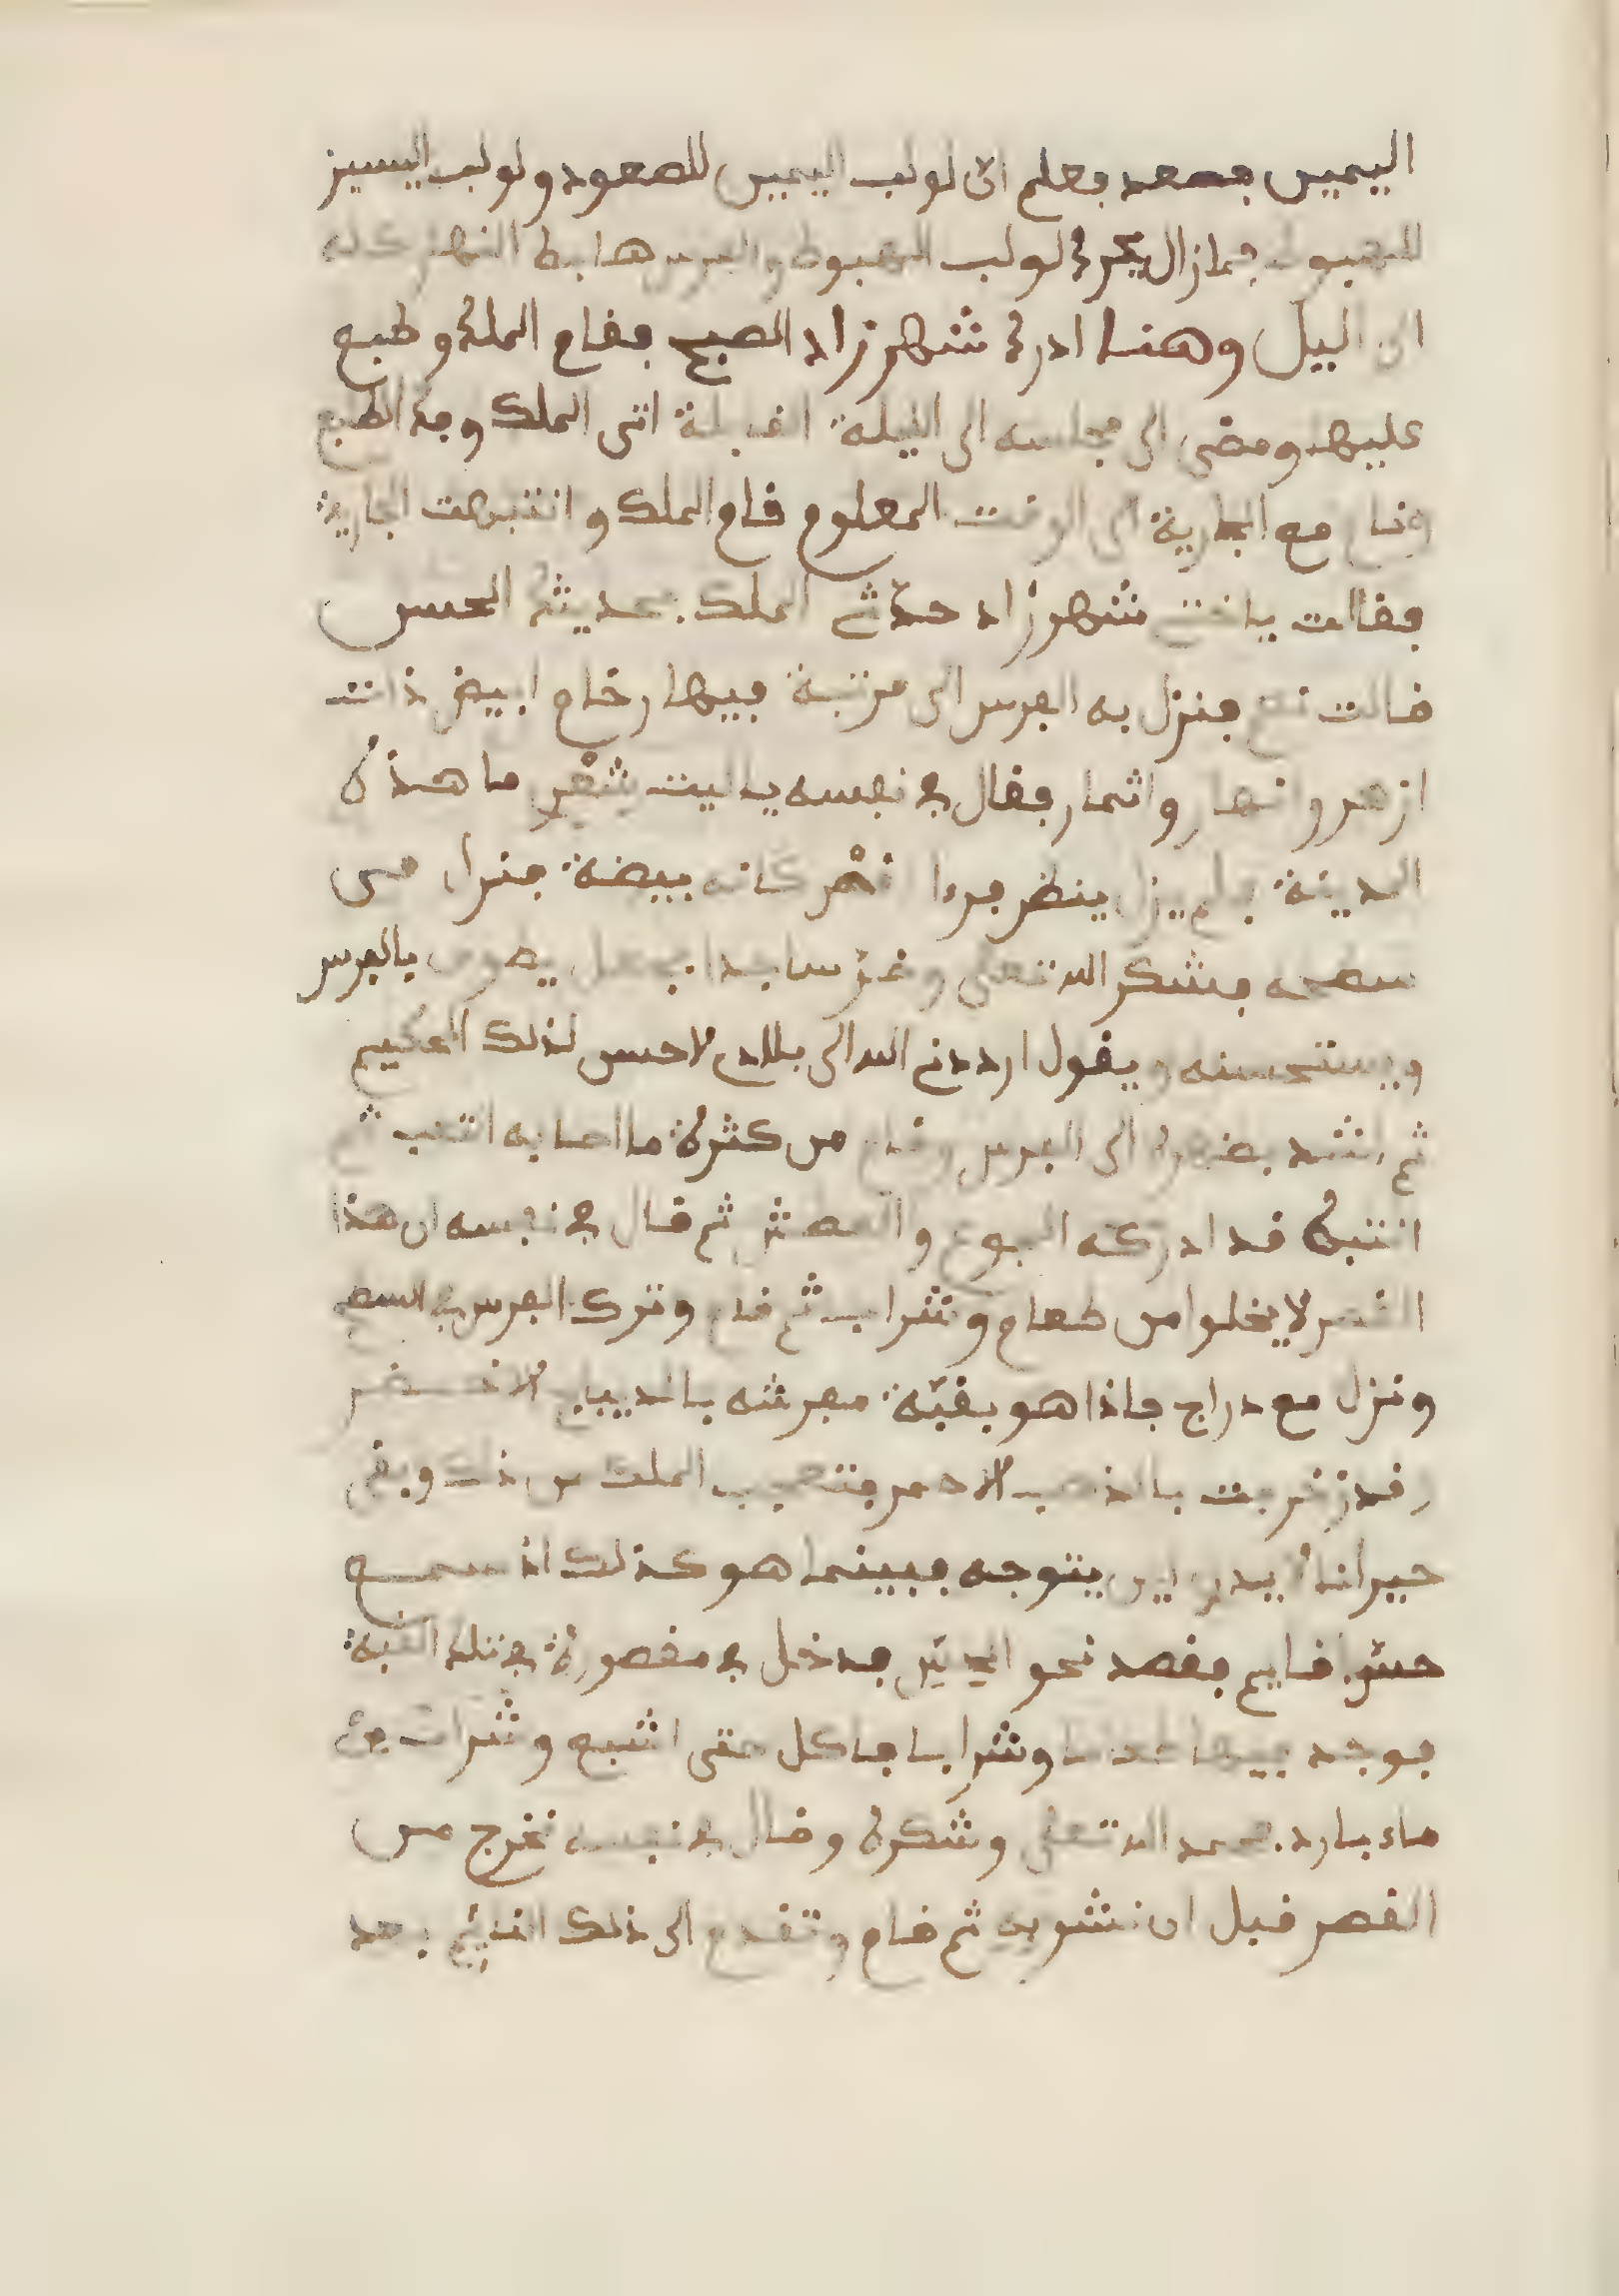 اليمين فصعد فعلم انّ لولب اليمين للصعود ولولب اليسير
للهبوط فمازال يحرك لولب الهبوط والفرس هابط النهر كله
الى اليل وهنا ادرك شهرزاد الصبح فقام الملك وطبع
عليها ومضى الى مجلسه الى الليلة القبلة اتى الملك وفك الطبع
ونام مع الجارية الى الوقت المعلوم قام الملك وانتبهت الجارية
فقالت ياختي شهرزاد حدّثي الملك بحديثك الحسن
قالت نعم فنزل به الفرس الى مرتبة فيها رخام ابيض ذات
ازهر وانهار واثمار فقال في نفسه ياليت شعري ما هذه
المدينة فلم يزل ينظر فرءا قصر كانه بيضة فنزل من
سطحه فشكر الله تعلى وخرّ ساجدا فجعل يطوف بالفرس
ويستحسنه ويقول ارددني الله الى بلادي لاحسن لذلك الحكيم
ثم اشد بضهره الى الفرس ونام من كثرة ما اصابه التعب ثم
انتبه قد ادركه الجوع والعطش ثم قال في نفسه ان هذا
القصر لا يخلوا من طعام وشراب ثم قام وترك الفرس في السطح
ونزل مع دراج فاذا هو بقبّة مفرشه بالديباج الاخضر
وقد زخرفت بالذهب الاحمر فتعجب الملك من ذلك وبقي
حيرانا لايدري اين يتوجه فبينما هو كذلك اذ سمع
حسّ نايم فقصد نحو فدخل في مقصورة في تلك القبة
فوجد فيها طعاما وشرابا فاكل حتى اشبع وشراب
ماء بارد فحمد الله تعلى وشكره وقال في نفسه نخرج من
القصر قبل ان ثم قام وتقدم الى ذلك النايم بعد